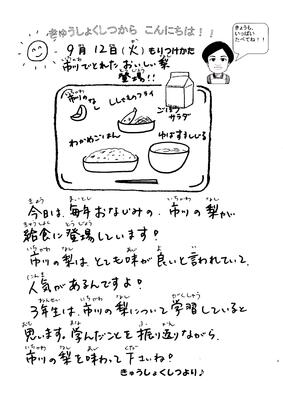 きゅうしょくしつから こんにちは！！
きょうも、
いっぱい
たべてね！！
9月12日(火)もりつけかた
市川でとれた おいしい梨
登場!!
市川のなし
ししゃものフライ
ごぼう
サラダ
わかめごはん
ゆばすましじる
今日は、毎年おなじみの、市川の梨が、
給食に登場しています？
市川の梨は、とても味が良いと言われていて、
人気があるんですよ？
3年生は、市川の梨について学習していると
思います。学んだことを振り返りながら、
市川の梨を味わって下さいね？
きゅうしょくしつより♪